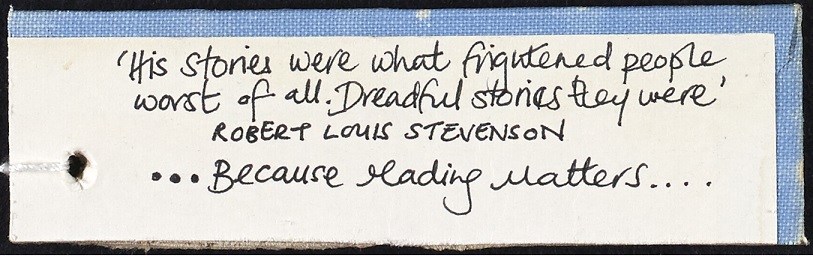 'His stories were what frightened people
worst of all. Dreadful stories they were'
ROBERT LOUIS STEVENSON
...Because reading matters....